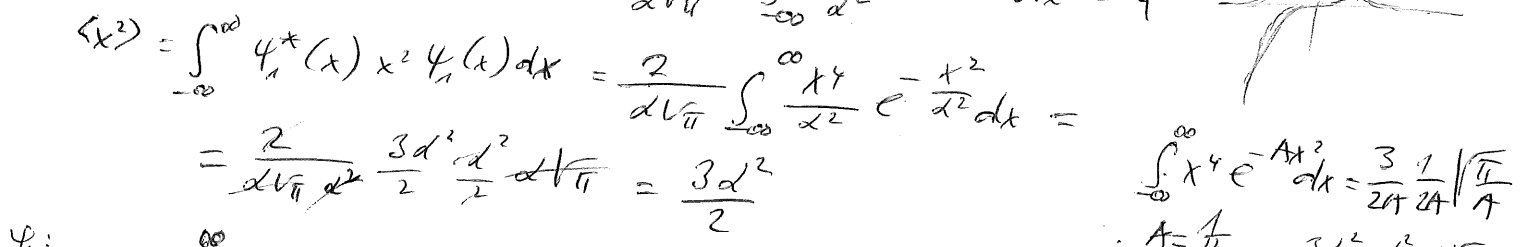 ⟨x²⟩ = ∫_{-∞}^{∞} ψ₁*(x) x² ψ₁(x) dx = 2/(α√π) ∫_{-∞}^{∞} x⁴/α² e^{-x²/α²} dx =
= 2/(α√π α²) 3α²/2 α²/2 α√π = 3α²/2
∫_{-∞}^{∞} x⁴ e^{-Ax²} dx = 3/2A 1/2A √(π/A)
ψ: ∞